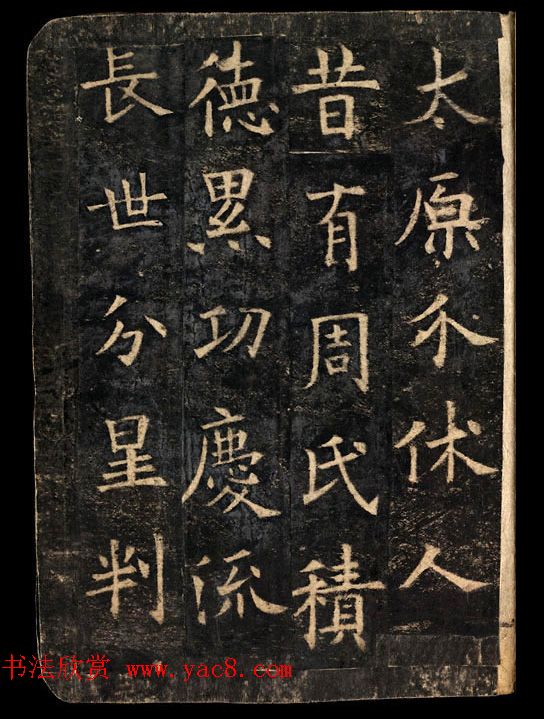 太原介休人
昔有周氏積
德累功慶流
長世分星判
书法欣赏 www.yac8.com